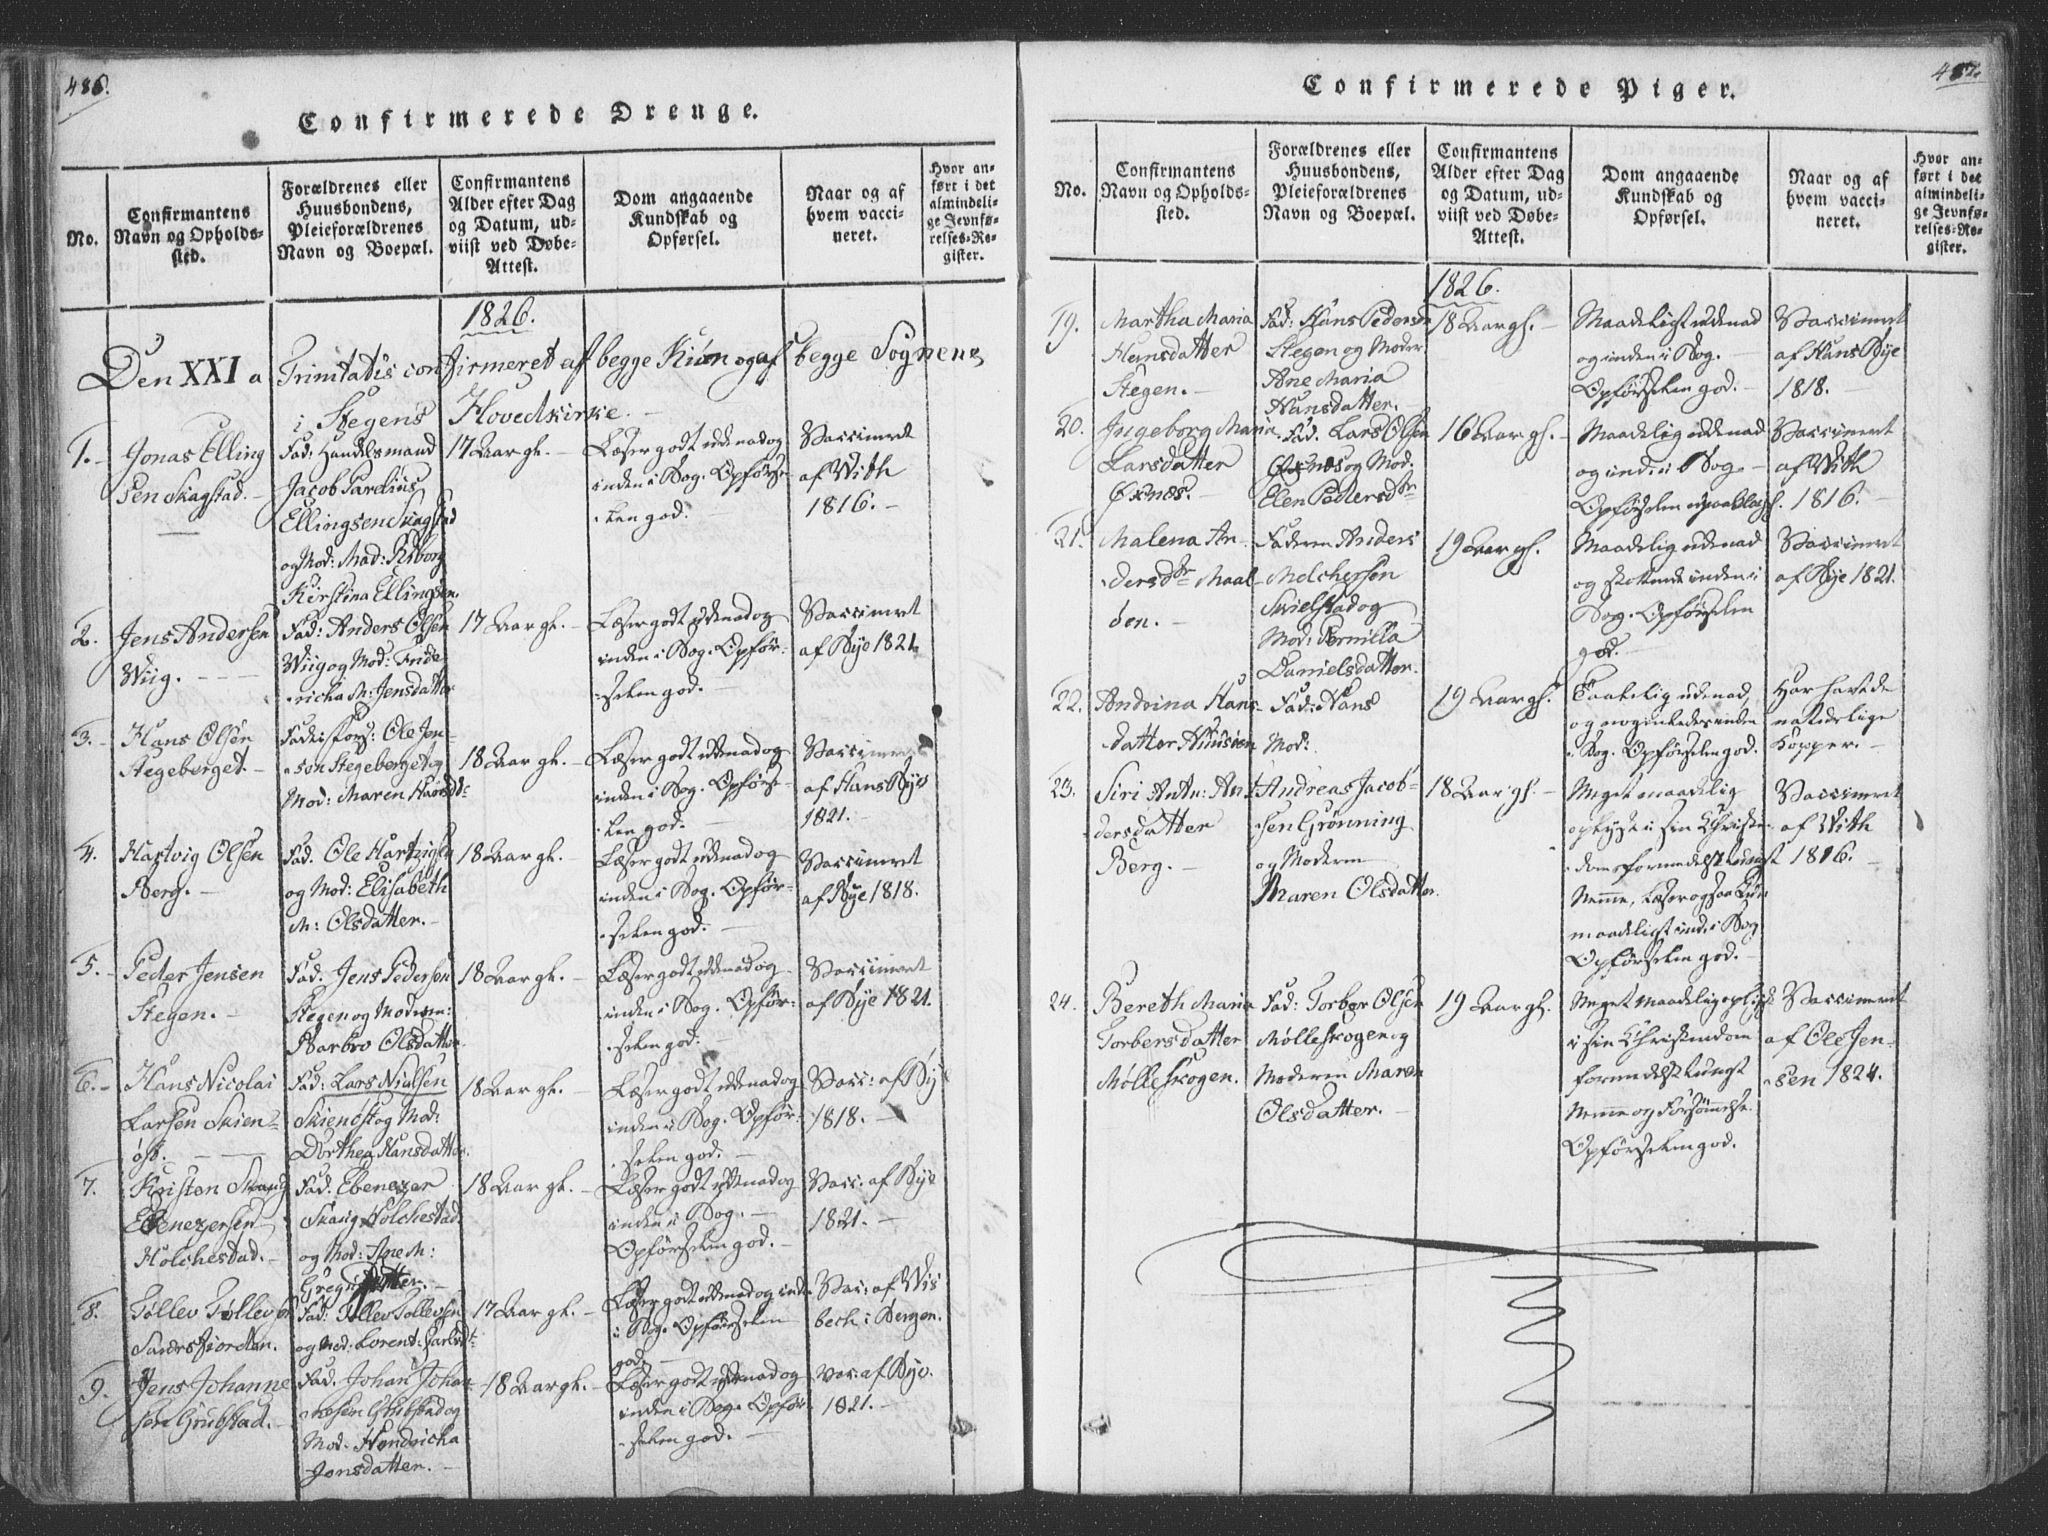 486.
Confirmerede Drenge.
No.
Confirmantens
Navn og Opholds-
sted.
Forældrenes eller
Huusbondens,
Pleieforældrenes
Navn og Boepæl.
Confirmantens
Alder efter Dag
og Datum, ud-
viist ved Døbe-
Attest.
Dom angaaende
Kundskab og
Opførsel.
Naar og af
hvem vacci-
neret.
Hvor an-
ført i det
almindeli-
ge Jevnfø-
relses-Re-
gister.
1826.
Den XXI a Trinitatis confirmeret af begge Kiön og af begge Sognene,
i Stegens Hovedkirke.
1.
Jonas Elling
sen Skagstad.
Fad: Handelsmand
Jacob Parelius
Ellingsen Skagstad
og Mod: Mad: Riborg
Kirstina Ellingsen.
17 Aar gl.
Læser godt udenad og
inden i Bog. Opførse-
len god.
Vaccineret
af With
1816.
2.
Jens Andersen
Wiig.
Fad: Anders Olsen
Wiig og Mod: Fride
richa M: Jensdatter
17 Aar gl.
Læser godt udenad og
inden i Bog. Opfør-
selen god.
Vaccineret
af Bye 1821.
3.
Hans Olsen
Stegeberget.
Ole Jen-
sen Stegeberget og
Mod: Maren
18 Aar gl.
Læser godt udenad og
inden i Bog. Opførse-
len god.
Vaccineret
af Hans Bye
1821.
4.
Hartvig Olsen
Berg.
Fad. Ole Hartvigsen
og Mod: Elisabeth
M: Olsdatter.
18 Aar gl.
Læser godt udenad og
inden i Bog. Opfør-
selen god.
Vaccineret
af Bye 1818.
5.
Peder Jensen
Stegen.
Fad: Jens Pedersen
Stegen og Moderen:
Barbro Olsdatter.
18 Aar gl.
Læser godt udenad og
inden i Bog. Opfør-
selen god.
Vaccineret
af Bye 1821.
6.
Hans Nicolai
Larsen Skien-
Fad: Lars Nielsen
og Mod:
Dorthea Hansdatter.
18 Aar gl.
Læser godt udenad og
inden i Bog. Opfør-
selen god.
Vacc: af Bye
1818.
7.
Kristen Skaug
Ebenezersen
Holchestad.
Fad. Ebenezer
Skaug Holchestad
og Mod: Ane M:
18 Aar gl.
Læser godt udenad og
inden i Bog.
Opførselen god.
Vacc: af Bye
1821.
8.
Tollev Tollevsen
Sandsfjorden.
Fad: Tollev Tollevsen
og Mod: Lorent:
17 Aar gl.
Læser godt udenad og inde
i Bog. Opførselen
god.
Vac: af Wis
bech i Bergen.
9.
Jens Johanne
sen Grubstad.
Fad. Johan Johan
nesen Grubstad og
Mod. Hendricha
Jonsdatter.
18 Aar gl.
Læser godt udenad og
inden i Bog. Opfør-
selen god.
Vac. af Bye.
1821.
487.
Confirmerede Piger.
No.
Confirmantens
Navn og Opholds-
sted.
Forældrenes eller
Huusbondens,
Pleieforældrenes
Navn og Boepæl.
Confirmantens
Alder efter Dag
og Datum, ud-
viist ved Døbe-
Attest.
Dom angaaende
Kundskab og
Opførsel.
Naar og af
hvem vacci-
neret.
Hvor an-
ført i det
almindeli-
ge Jevnfø-
relses-Re-
gister.
1826.
19.
Martha Maria
Hansdatter
Stegen.
Fad: Hans Pedersen
Stegen og Moder
Ane Maria
Hansdatter.
18 Aar gl.
Maadeligt udenad
og inden i Bog.
Opførselen god.
Vaccineret
af Hans Bye
1818.
20.
Ingeborg Maria
Larsdatter
Øxnæs.
Fad. Lars Olsen
Øxnæs og Mod.
Elen Pedersdtr
16 Aar gl.
Maadelig udenad
og inde i Bog.
Opførselen
Vaccineret
af With
1816.
21.
Malena An-
dersdtr Maal-
den.
Faderen Anders
Melchersen
Skielstad og
Mod: Pernilla
Danielsdatter.
19 Aar gl.
Maadelig udenad
og inden i
Bog. Opførselen
god.
Vaccineret
af Bye 1821.
22.
Andrina Hans-
datter
Fad: Hans
Mod:
19 Aar gl.
Taalelig udenad,
og inden
Bog. Opførselen god.
Har havt de
naturlige
Kopper.
23.
Siri An: An
dersdatter
Berg.
Andreas Jacob-
sen Grønning
og Moderen
Maren Olsdatter.
18 Aar gl.
Meget maadelig
oplyst i sin Christen
doms formedelst tungt
Nemme, Læser ogsaa kun
maadeligt inde i Bog
Opførselen god.
Vaccineret
af With
1816.
24.
Bereth Maria
Torbersdatter
Mølleskogen.
Fad: Torber Olsen
Mølleskogen og
Moderen Maren
Olsdatter.
19 Aar gl.
Meget maadelig oplyst
i sin Christendom
formedelst tungt
Nemme og Forsømmelse.
Opførselen god.
Vaccineret
af Ole Jen-
sen 1824.